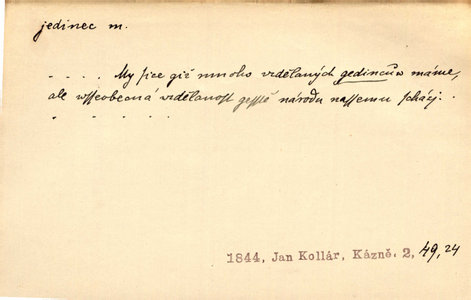 jedinec m.
. . . . My sice giž mnoho vzdělaných gedinců máme,
ale wsseobecná vzdělanost gesstě národu nassemu scházj.
. . . . .
1844, Jan Kollár, Kázně. 2, 49, 24